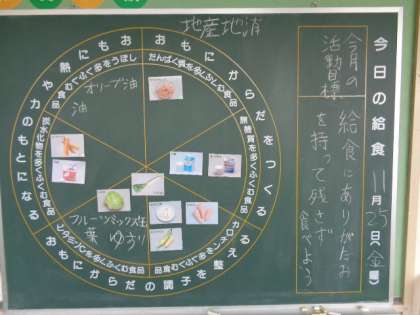 地産地消
今日の給食
11月25日(金曜)
今月の
活動目標
給食にありがたみ
を持って残さず
食べよう
おもにからだをつくる
おもにからだの調子を整える
おもに熱や力のもとになる
たんぱく質を多くふくむ食品
無機質を多くふくむ食品
カロテンを多くふくむ食品
ビタミンCを多くふくむ食品
炭水化物を多くふくむ食品
しぼうを多くふくむ食品
オリーブ油
油
フルーツミックス缶